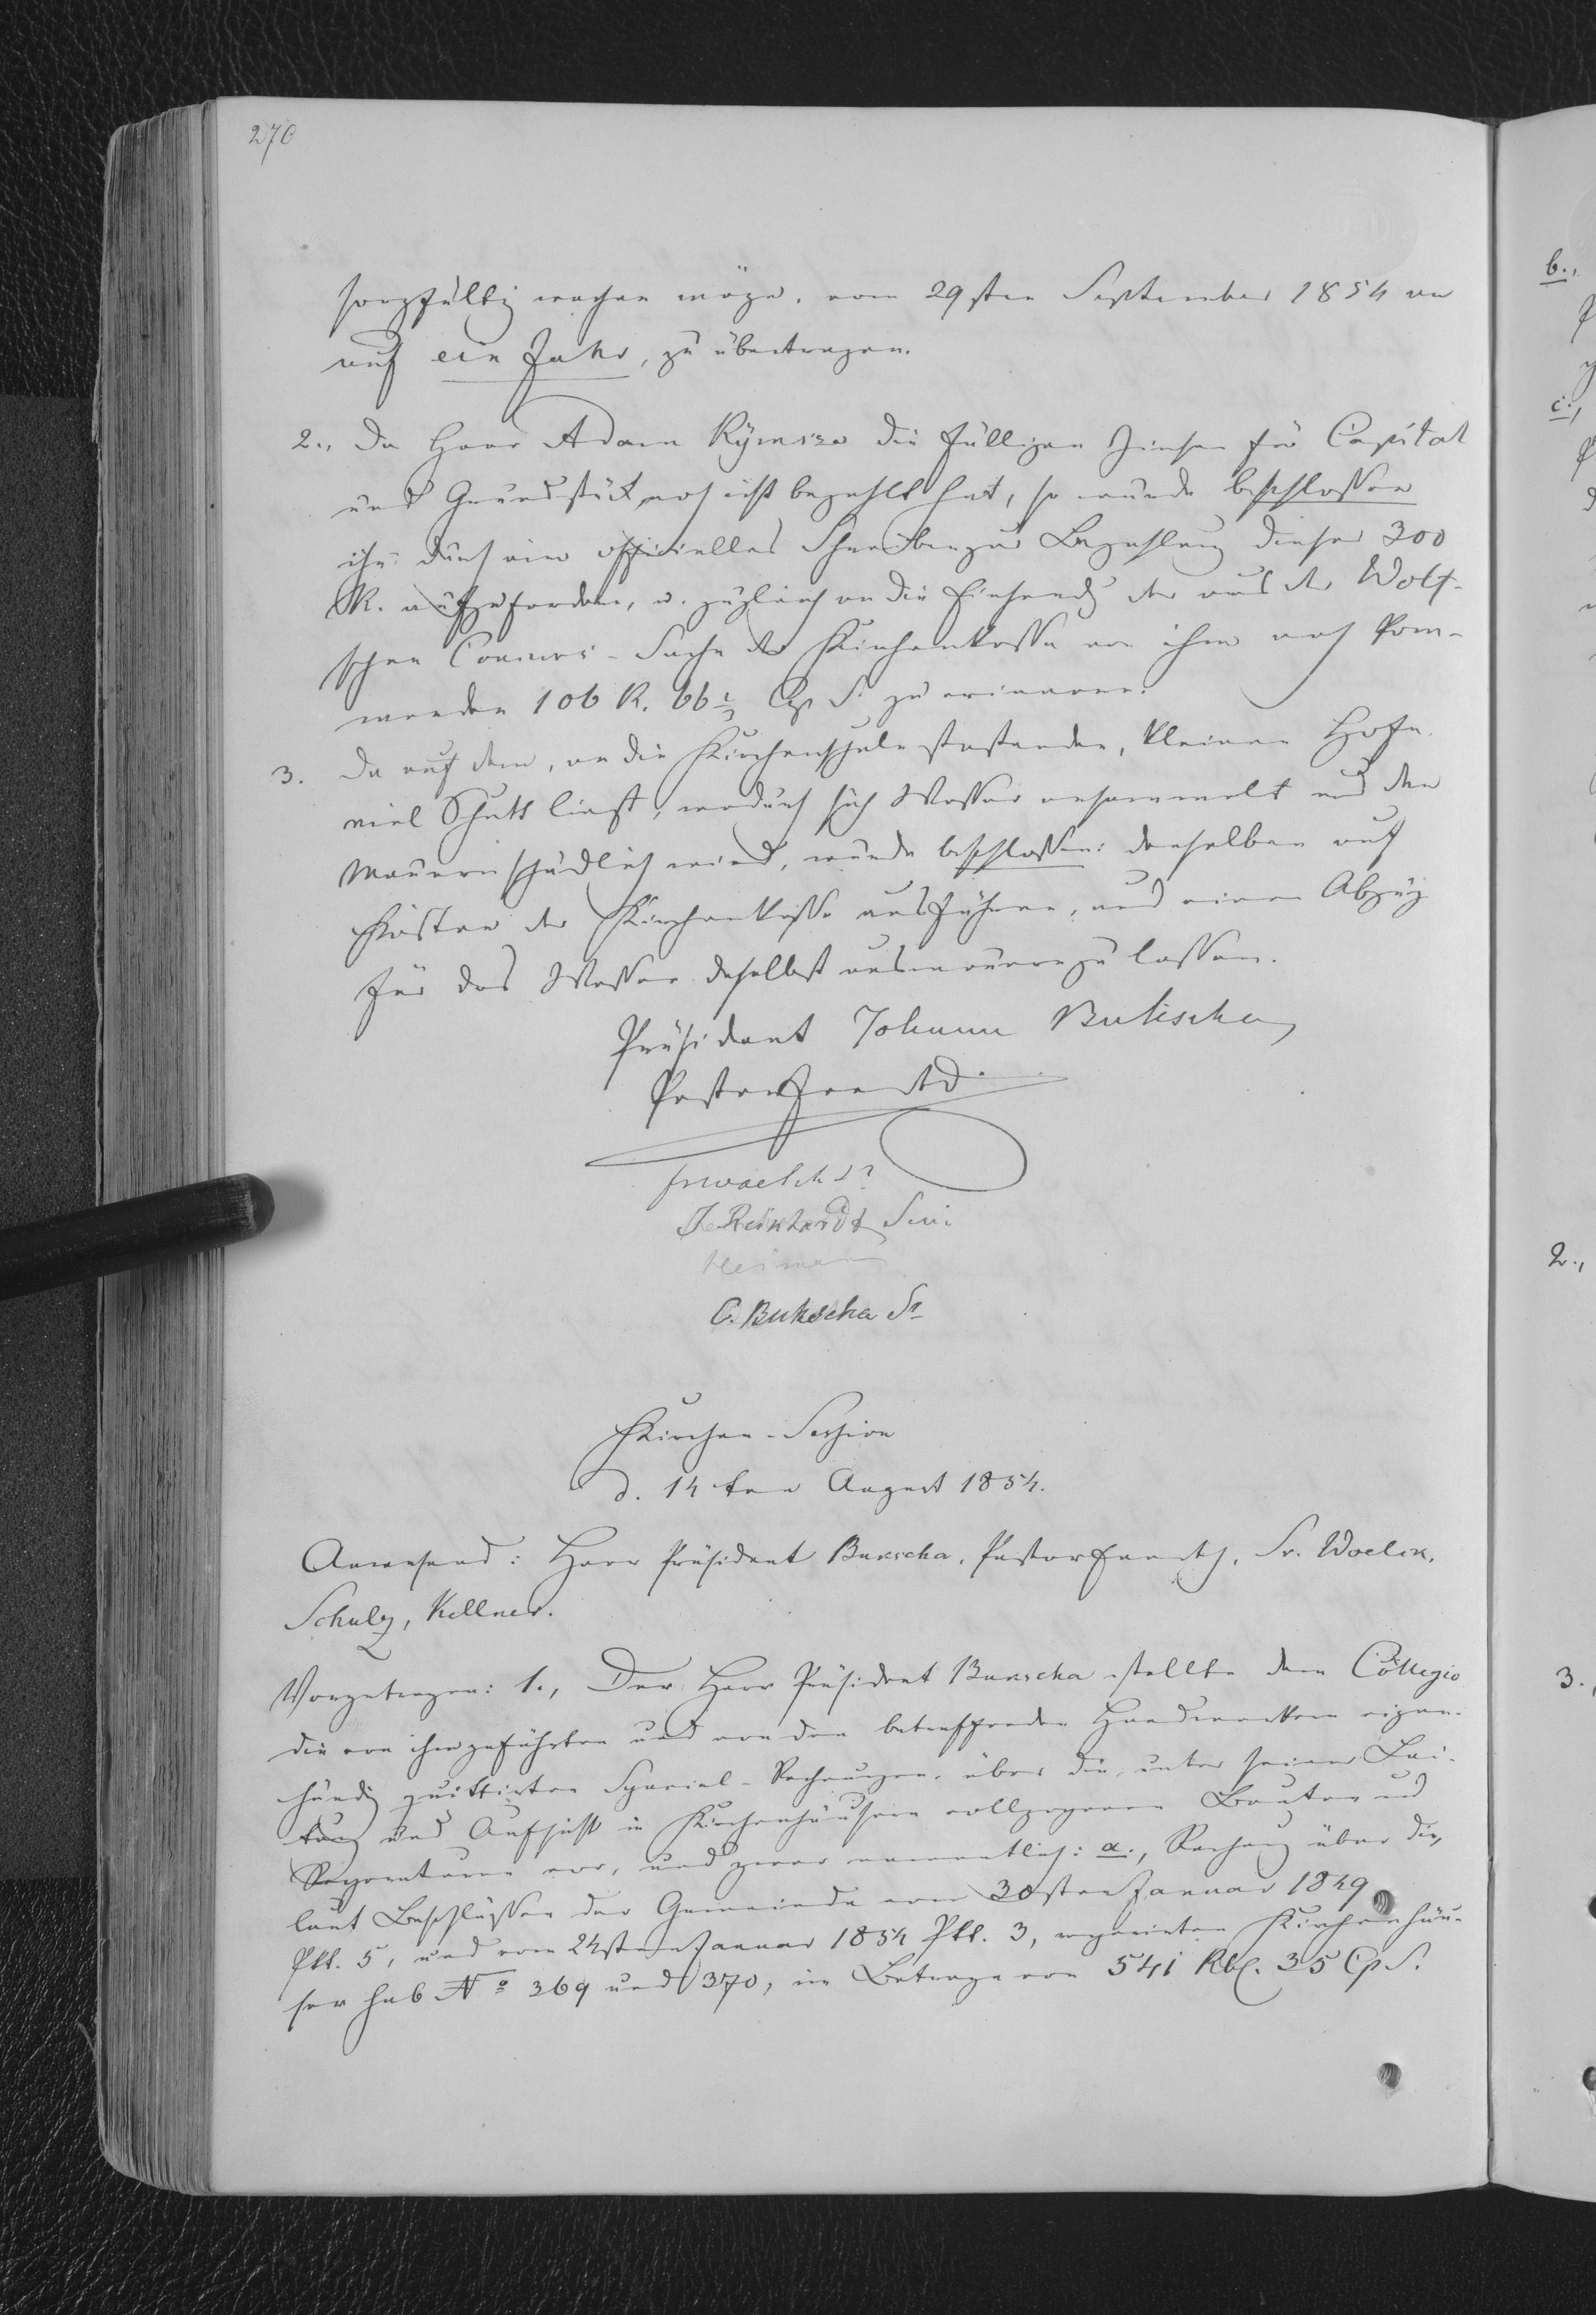 270
sorgfältig wachen möge, vom 29sten September 1854 an
auf ein Jahr, zu übertragen.
2., Da Herr Adam Rymsza die fälligen Zinsen für Capital
und Grundstück noch nicht bezahlt hat, so wurde beschlossen
ihn durch ein officielles Schreiben zur Bezahlung dieser 300
R. aufzufordern, u. zugleich an die Einsendg der aus der Wolf-
schen Concurs-Sache der Kirchenkasse von ihm noch
106 R. 66 2/3 Cp S. zu erinnern.
3. Da auf dem, an die Kirchenschule stoßenden, kleinen Hofe
viel Schutt liegt, wodurch sich Wasser ansammelt und den
Mauern schädlich wird, wurde beschlossen: denselben auf
Kosten der Kirchenkasse ausführen, und einen Abzug
für das Wasser daselbst ausmauern zu lassen.
Präsident Johann Bukscha
Pastor
J Reinhardt Seni
C. Bukscha Sr
Kirchen-Session
d. 14ten August 1854.
Anwesend: Herr Präsident Bukscha, Pastor Sr. Woelck,
Schulz, Kellner.
Vorgetragen: 1., Der Herr Präsident Bukscha stellte dem Collegio
die von ihm geführten und von den betreffenden Handwerkern eigen-
händig quittirten Special-Rechnungen über die, unter seiner Lei-
tung und Aufsicht in Kirchenhäusern vollzogenen Bauten und
Reparaturen vor, und zwar namentlich: a., Rechnung über die,
laut Beschlüssen der Gemeinde vom 30sten Januar 1849
Pkt. 5, und vom 24sten Januar 1854 Pkt. 3, reparirten Kirchenhäu-
ser sub No 369 und 370, im Betrage von 541 Rbl. 35 Cp S.
b.,
c.,
2.,
3.,